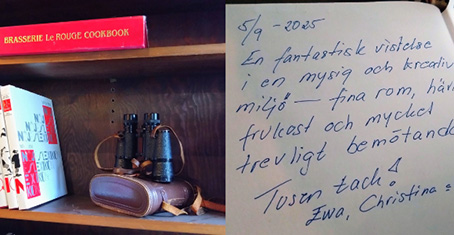 BRASSERIE LE ROUGE COOKBOOK
5/9 - 2025
En fantastisk vistelse
i en mysig och kreativ
miljö — fina rom,
frukost och mycket
trevligt bemötande
Tusen tack!
Ewa, Christina